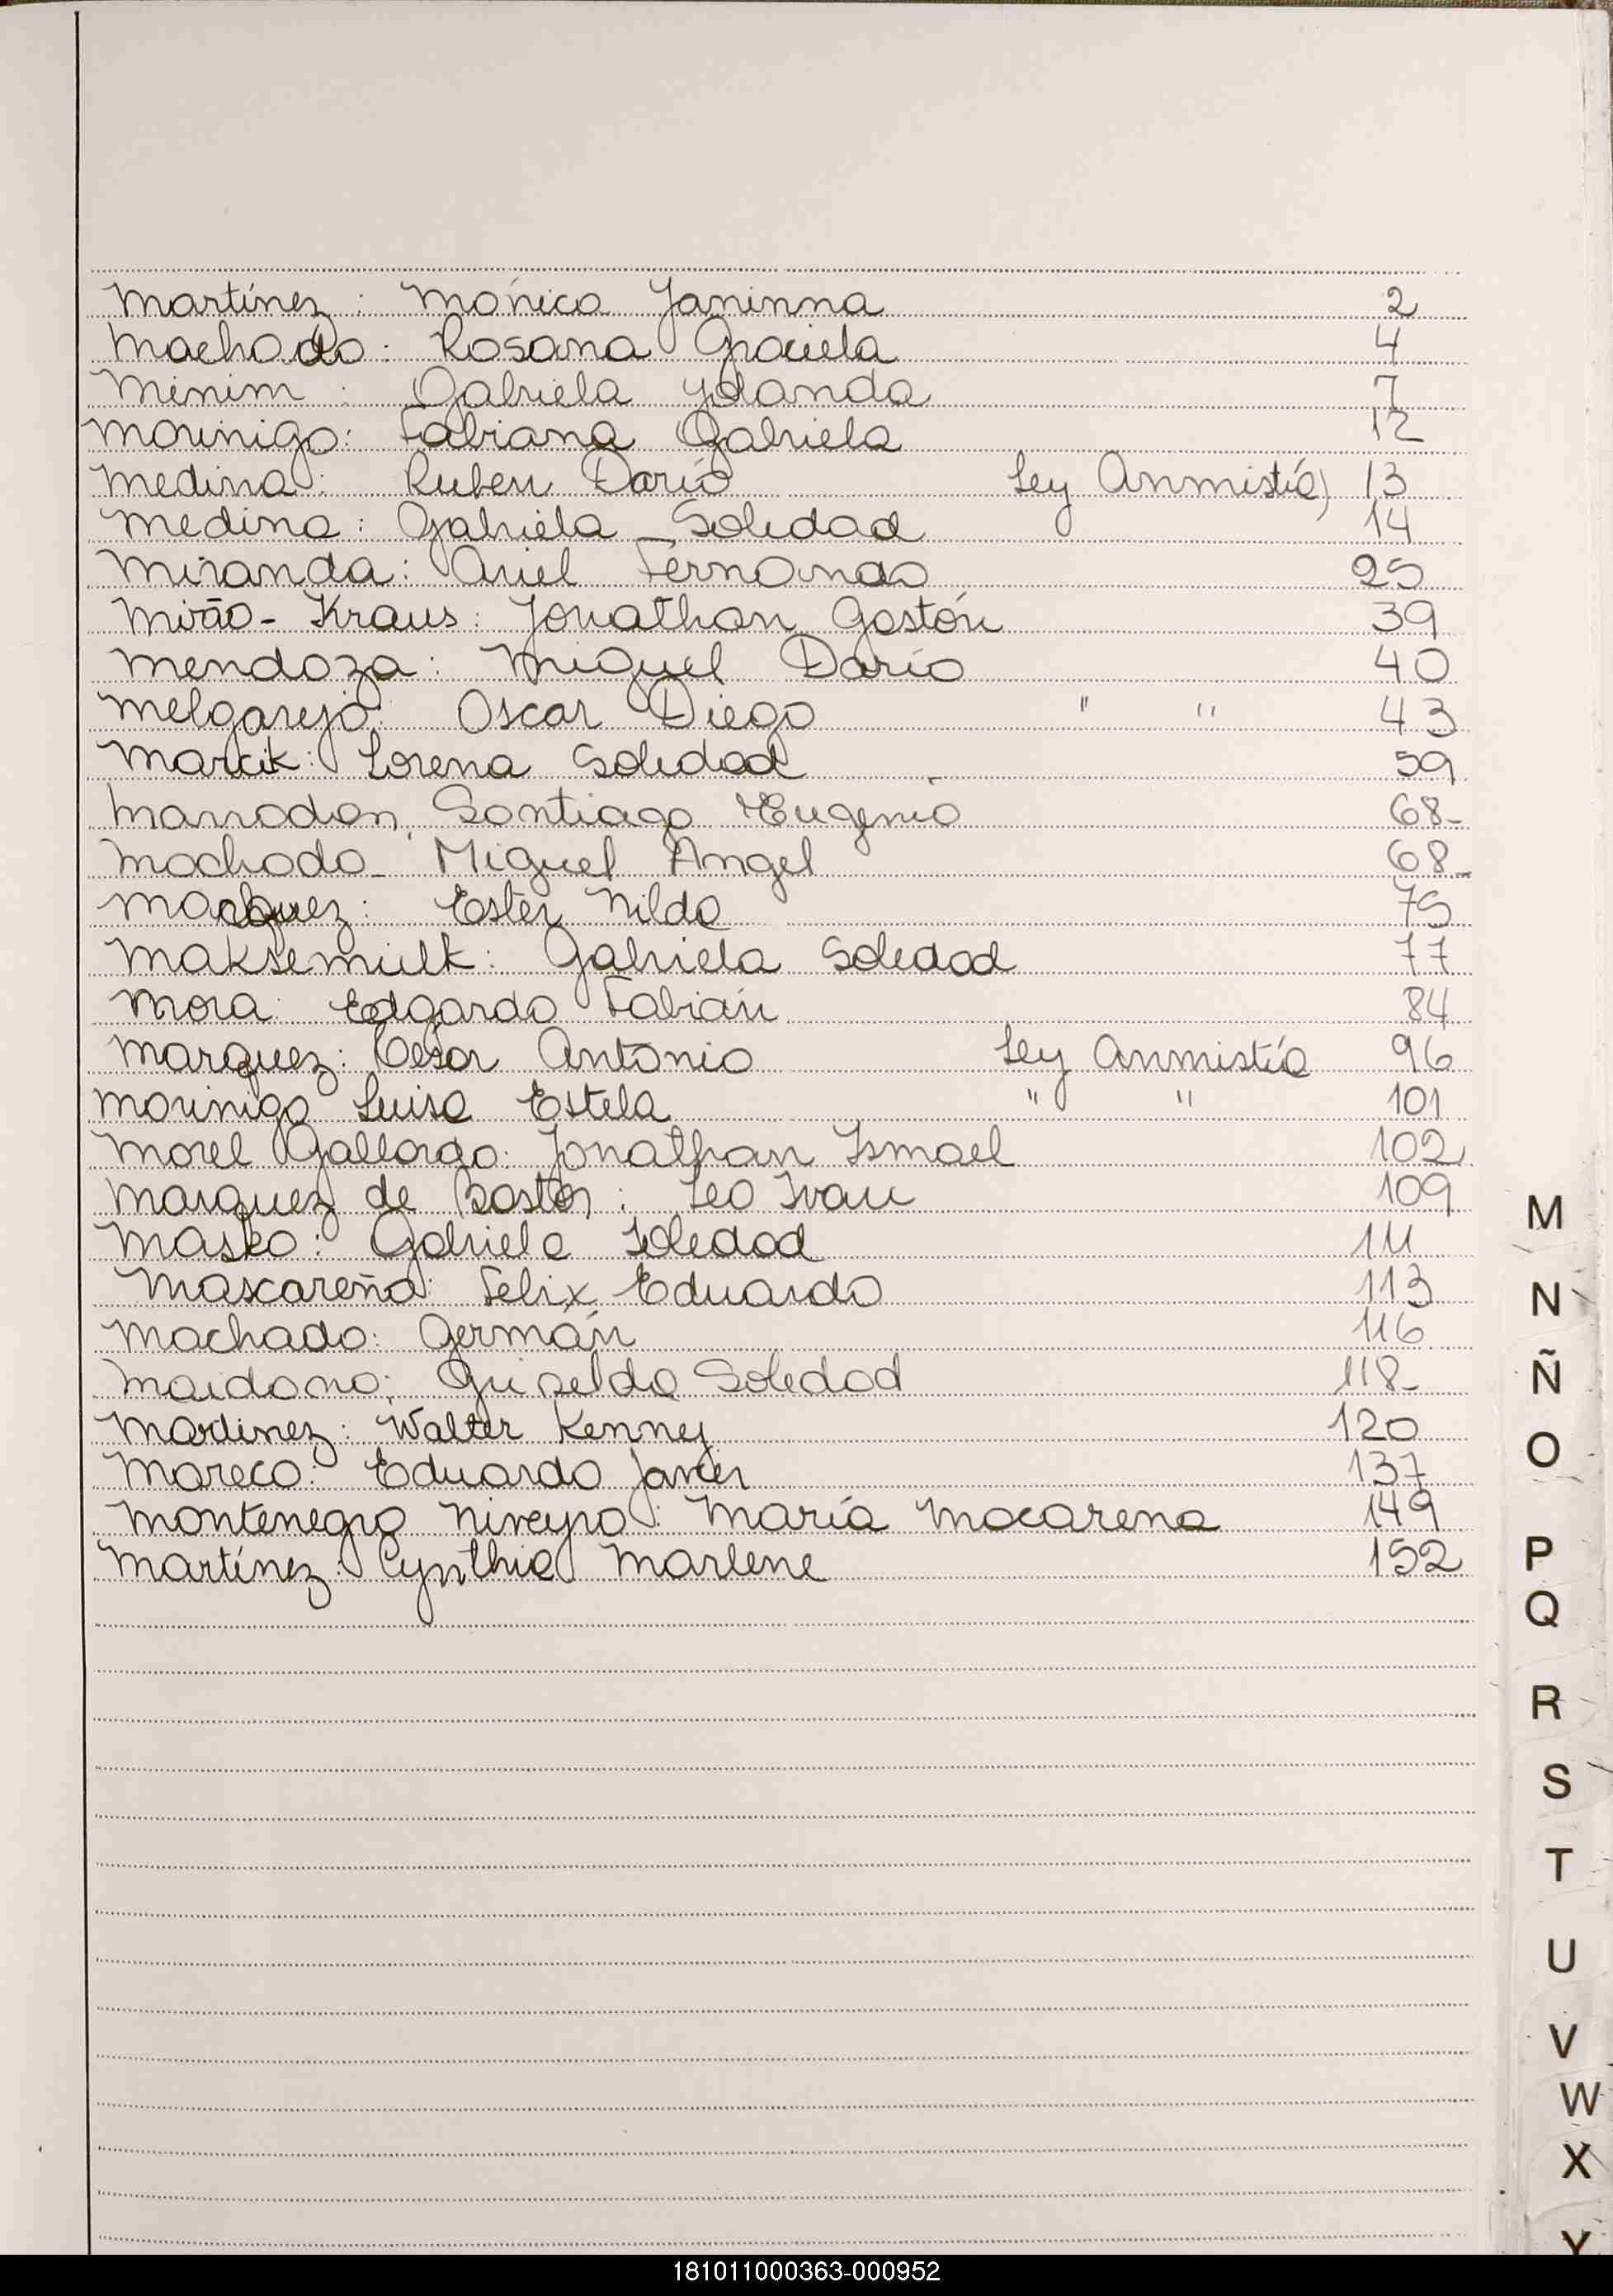 Martínez: Mónica Janinna 2
Machado: Rosana Graciela 4
Minim: Gabriela Yolanda 7
Morinigo: Fabiana Gabriela 12
Medina: Ruben Darío Ley Anmistía) 13
Medina: Gabriela Soledad 14
Miranda: Ariel Fernando 25
Mirão-Kraus: Jonathan Gastón 39
Mendoza: Miguel Darío 40
Melgarejo: Oscar Diego " " 43
Marcik: Lorena Soledad 59
Marrodan, Santiago Eugenio 68-
Machado - Miguel Angel 68-
Marquez: Ester Nilda 75
Maksemiulk: Gabriela Soledad 77
Mora: Edgardo Fabián 84
Marquez: César Antonio Ley Anmistía 96
Morinigo Luisa Estela " " 101
Morel Gallardo: Jonathan Ismael 102
Marquez de Bastos: Leo Ivan 109
Masko: Gabriela Soledad 111
Mascareña: Felix Eduardo 113
Machado: Germán 116
Maidana: Griselda Soledad 118-
Mardinez: Walter Kenney 120
Mareco: Eduardo Javier 137
Montenegro Niveyro: María Macarena 149
Martínez: Cynthia Marlene 152
M
N
Ñ
O
P
Q
R
S
T
U
V
W
X
Y
181011000363-000952